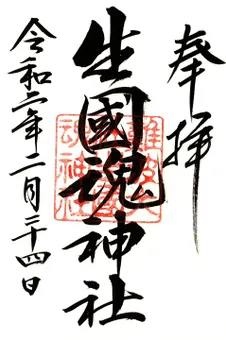 奉拝
生國魂神社
令和二年二月二十四日